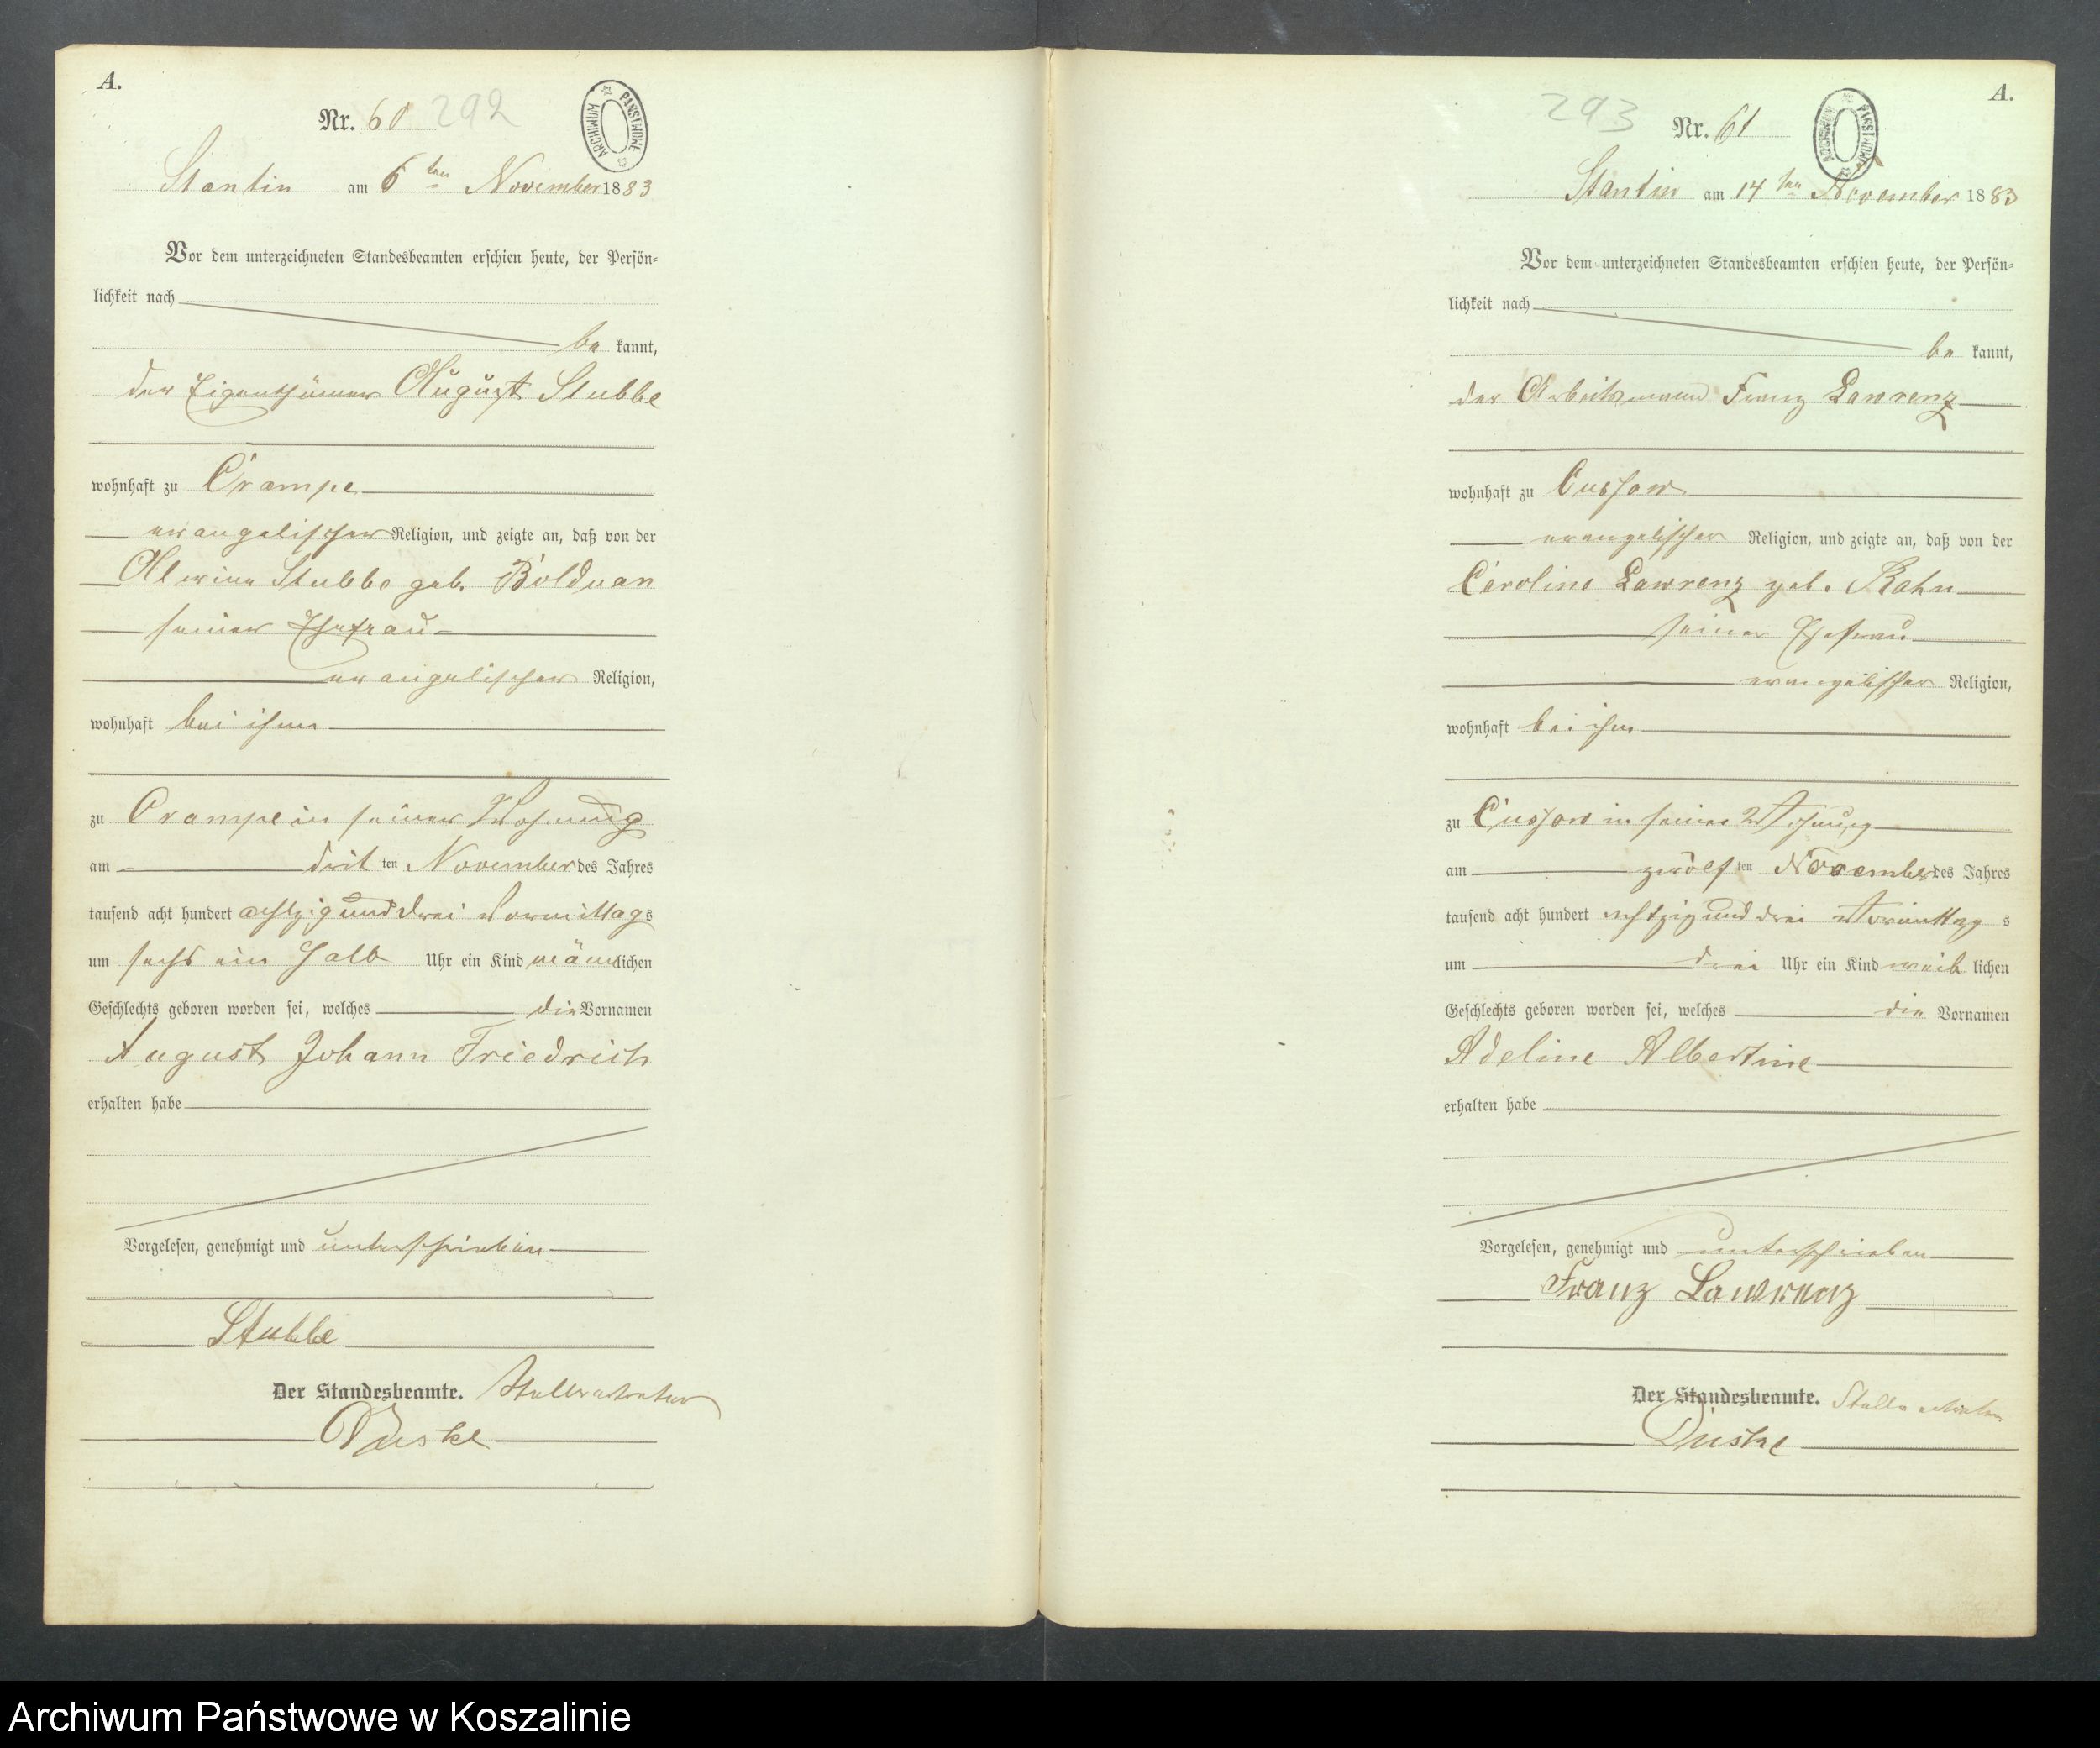 A.
Nr. 60 292
ARCHIWUM PAŃSTWOWE
Stantin am 6ten November 1883
Vor dem unterzeichneten Standesbeamten erschien heute, der Persön-
lichkeit nach
be kannt,
der Eigenthümer August Stubbe
wohnhaft zu Crampe
evangelischer Religion, und zeigte an, daß von der
Alwine Stubbe geb. Bolduan
seiner Ehefrau
evangelischer Religion,
wohnhaft bei ihm
zu Crampe in seiner Wohnung
am drit ten November des Jahres
tausend acht hundert achtzig und drei Vormittags
um sechs ein halb Uhr ein Kind männlichen
Geschlechts geboren worden sei, welches die Vornamen
August Johann Friedrich
erhalten habe
Vorgelesen, genehmigt und unterschrieben
Stubbe
Der Standesbeamte. Stellvertreter
A.
293 Nr. 61
ARCHIWUM PAŃSTWOWE
Stantin am 14ten November 1883
Vor dem unterzeichneten Standesbeamten erschien heute, der Persön-
lichkeit nach
be kannt,
der Arbeitsmann Franz Lawrenz
wohnhaft zu Cussow
evangelischer Religion, und zeigte an, daß von der
Caroline Lawrenz geb. Rahn
seiner Ehefrau
evangelischer Religion,
wohnhaft bei ihm
zu Cussow in seiner Wohnung
am zwölf ten November des Jahres
tausend acht hundert achtzig und drei Vormittag s
um drei Uhr ein Kind weib lichen
Geschlechts geboren worden sei, welches die Vornamen
Adeline Albertine
erhalten habe
Vorgelesen, genehmigt und unterschrieben
Franz Lawrenz
Der Standesbeamte. Stellvertreter
Archiwum Państwowe w Koszalinie